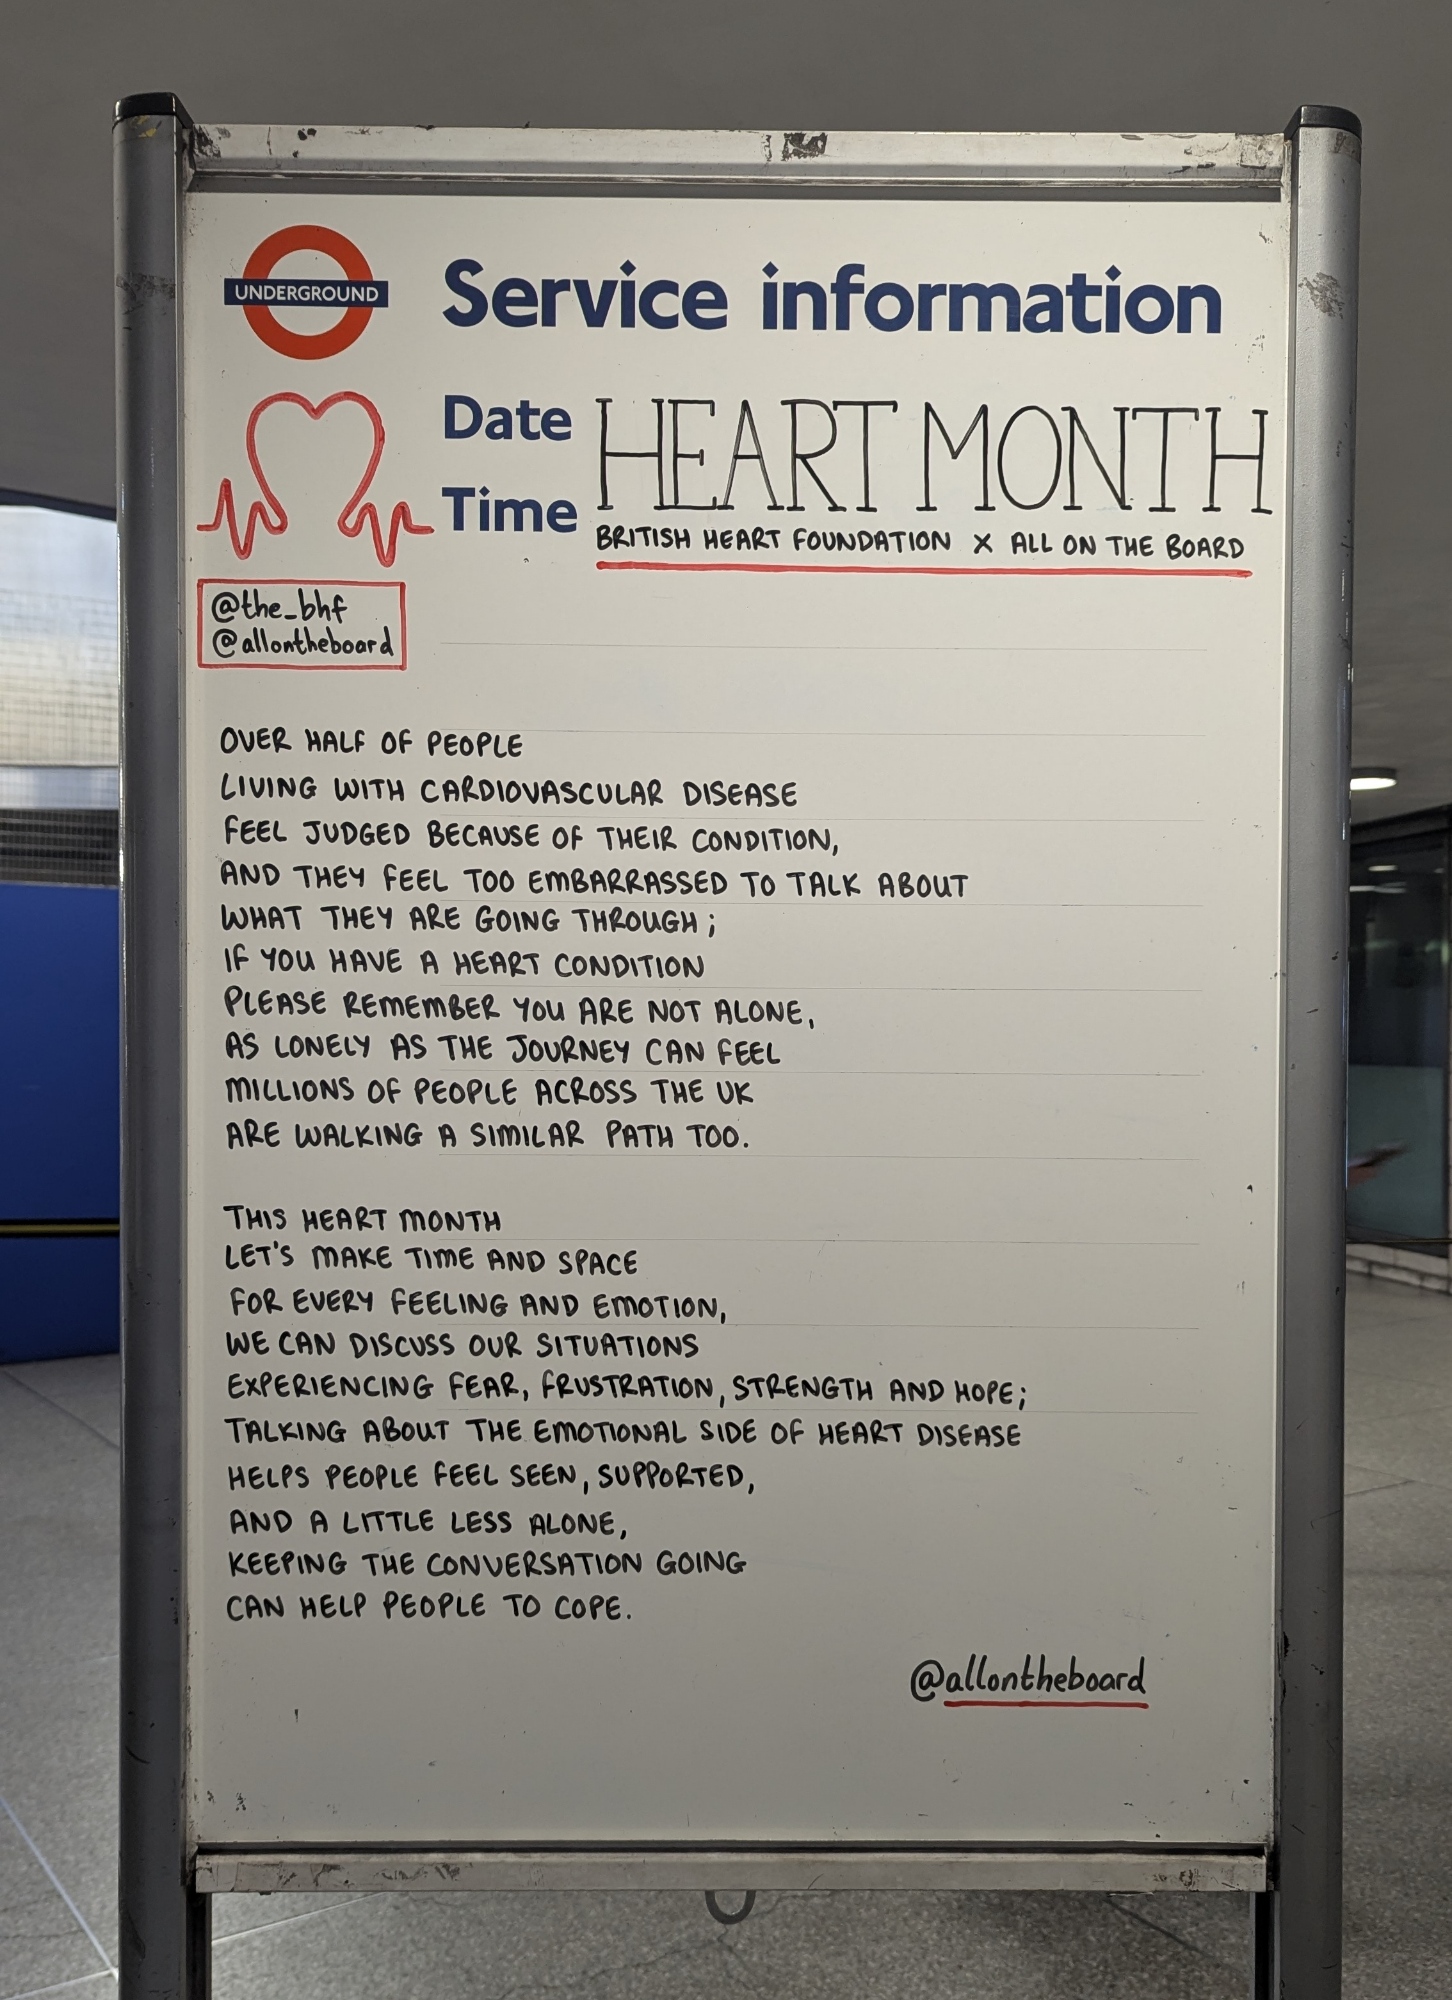 UNDERGROUND
Service information
Date
Time
HEART MONTH
BRITISH HEART FOUNDATION X ALL ON THE BOARD
@the_bhf
@allontheboard
OVER HALF OF PEOPLE
LIVING WITH CARDIOVASCULAR DISEASE
FEEL JUDGED BECAUSE OF THEIR CONDITION,
AND THEY FEEL TOO EMBARRASSED TO TALK ABOUT
WHAT THEY ARE GOING THROUGH;
IF YOU HAVE A HEART CONDITION
PLEASE REMEMBER YOU ARE NOT ALONE,
AS LONELY AS THE JOURNEY CAN FEEL
MILLIONS OF PEOPLE ACROSS THE UK
ARE WALKING A SIMILAR PATH TOO.
THIS HEART MONTH
LET'S MAKE TIME AND SPACE
FOR EVERY FEELING AND EMOTION,
WE CAN DISCUSS OUR SITUATIONS
EXPERIENCING FEAR, FRUSTRATION, STRENGTH AND HOPE;
TALKING ABOUT THE EMOTIONAL SIDE OF HEART DISEASE
HELPS PEOPLE FEEL SEEN, SUPPORTED,
AND A LITTLE LESS ALONE,
KEEPING THE CONVERSATION GOING
CAN HELP PEOPLE TO COPE.
@allontheboard